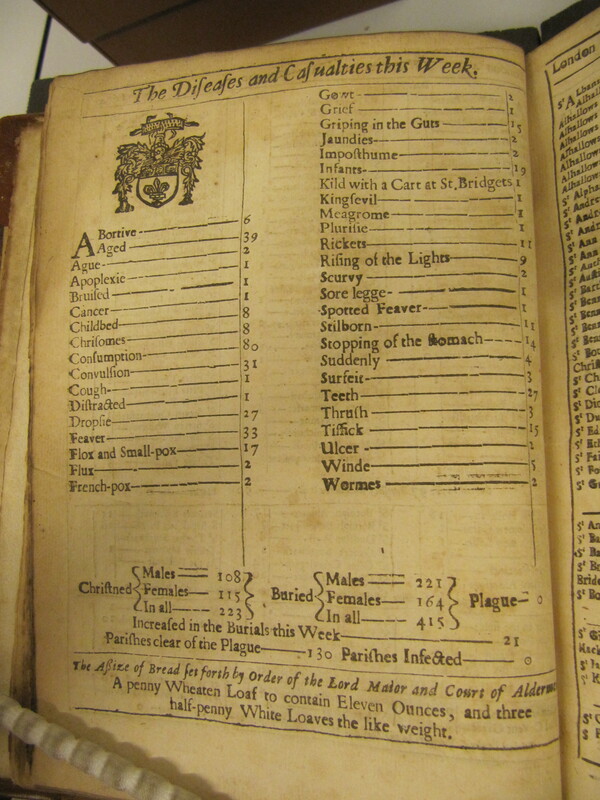 The Diſeaſes and Caſualties this Week.
ABortive — 6
Aged — 39
Ague — 2
Apoplexie — 1
Bruiſed — 1
Cancer — 1
Childbed — 8
Chriſomes — 8
Conſumption — 80
Convulſion — 31
Cough — 1
Diſtracted — 1
Dropſie — 27
Feaver — 33
Flox and Small-pox — 17
Flux — 2
French-pox — 2
Gowt — 2
Grief — 1
Griping in the Guts — 15
Jaundies — 2
Impoſthume — 2
Infants — 19
Kild with a Cart at St. Bridgets 1
Kingſevil — 1
Meagrome — 1
Pluriſie — 1
Rickets — 11
Riſing of the Lights — 9
Scurvy — 2
Sore legge — 1
Spotted Feaver — 1
Stilborn — 11
Stopping of the ſtomach — 14
Suddenly — 4
Surfeit — 3
Teeth — 27
Thruſh — 3
Tiſſick — 15
Ulcer — 2
Winde — 5
Wormes — 2
Chriſtned { Males — 108
Females — 115
In all — 223 }
Buried { Males — 221
Females — 164
In all — 415 } Plague — 0
Increaſed in the Burials this Week — 21
Pariſhes clear of the Plague — 130 Pariſhes Infected — 0
The Aſſize of Bread ſet forth by Order of the Lord Maior and Court of Alderm
A penny Wheaten Loaf to contain Eleven Ounces, and three
half-penny White Loaves the like weight.
London
Alhallows
Alhallows
Alhallows
Alhallows